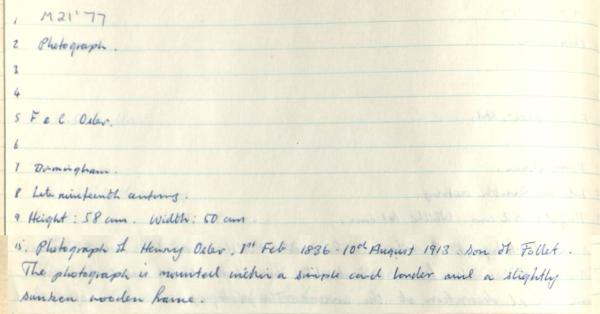 1 M21'77
2 Photograph.
3
4
5 F & C Osler.
6
7 Birmingham.
8 Late nineteenth century.
9 Height: 58 cm. Width: 50 cm
15. Photograph of Henry Osler, 1st Feb 1836 - 10th August 1913. Son of Follet.
The photograph is mounted within a simple card border and a slightly
sunken wooden frame.